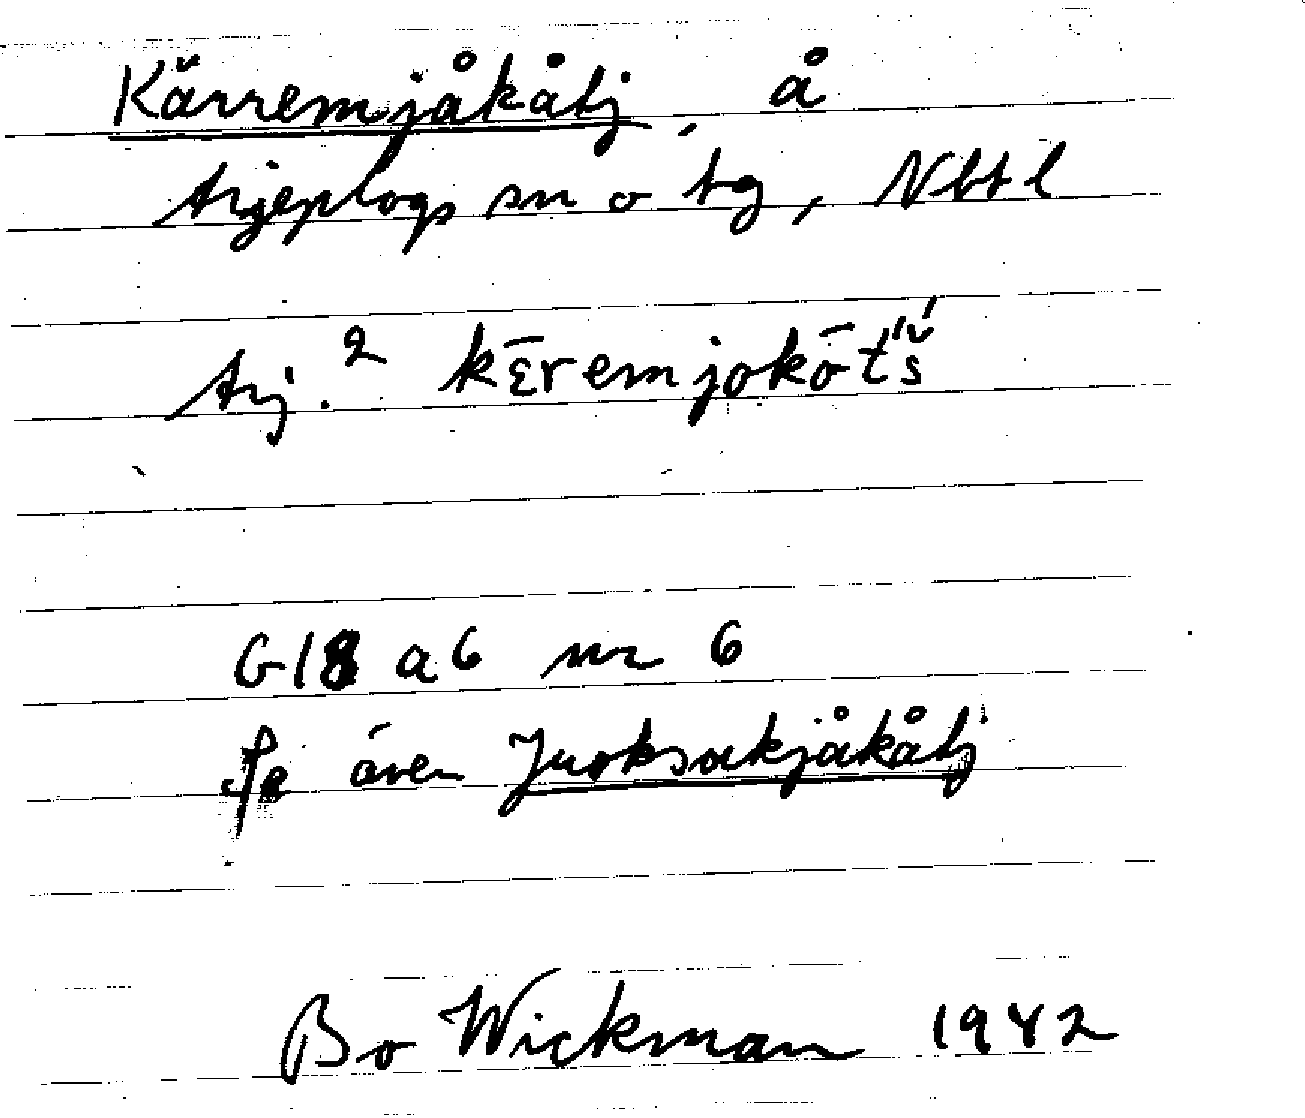 Kärremjåkåtj, å
Arjeplogs sn o tg, Nbtl
Arj.² kɛ̄remjokōt́š́
G18 a6 nr 6
Se även Juoksakjåkåtj
Bo Wickman 1942